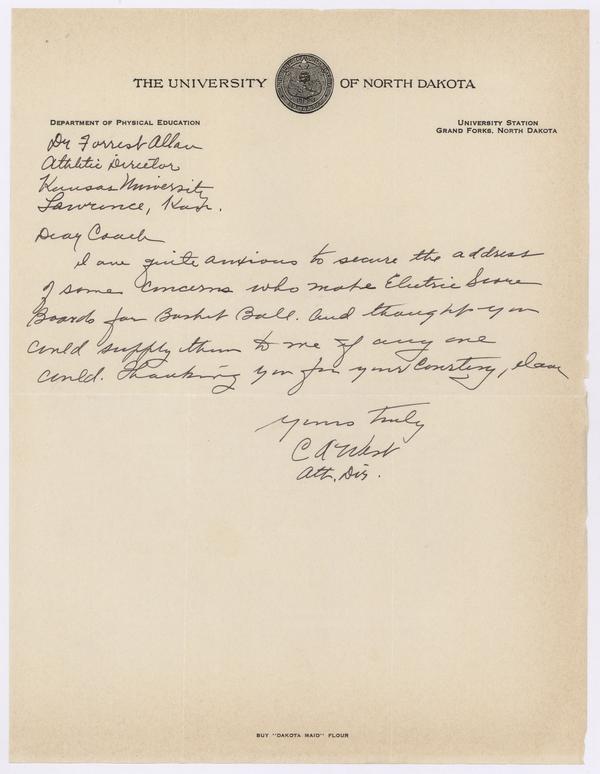 THE UNIVERSITY OF NORTH DAKOTA
DEPARTMENT OF PHYSICAL EDUCATION
UNIVERSITY STATION
GRAND FORKS, NORTH DAKOTA
Dr Forrest Allan
Athletic Director
Kansas University
Lawrence, Kan.
Dear Coach
I am quite anxious to secure the address
of some concerns who make Electric Score
Boards for Basket Ball. And thought you
could supply them to me if any one
could. Thanking you for your courtesy, I am
Yours truly
C A West
Ath. Dir.
BUY "DAKOTA MAID" FLOUR